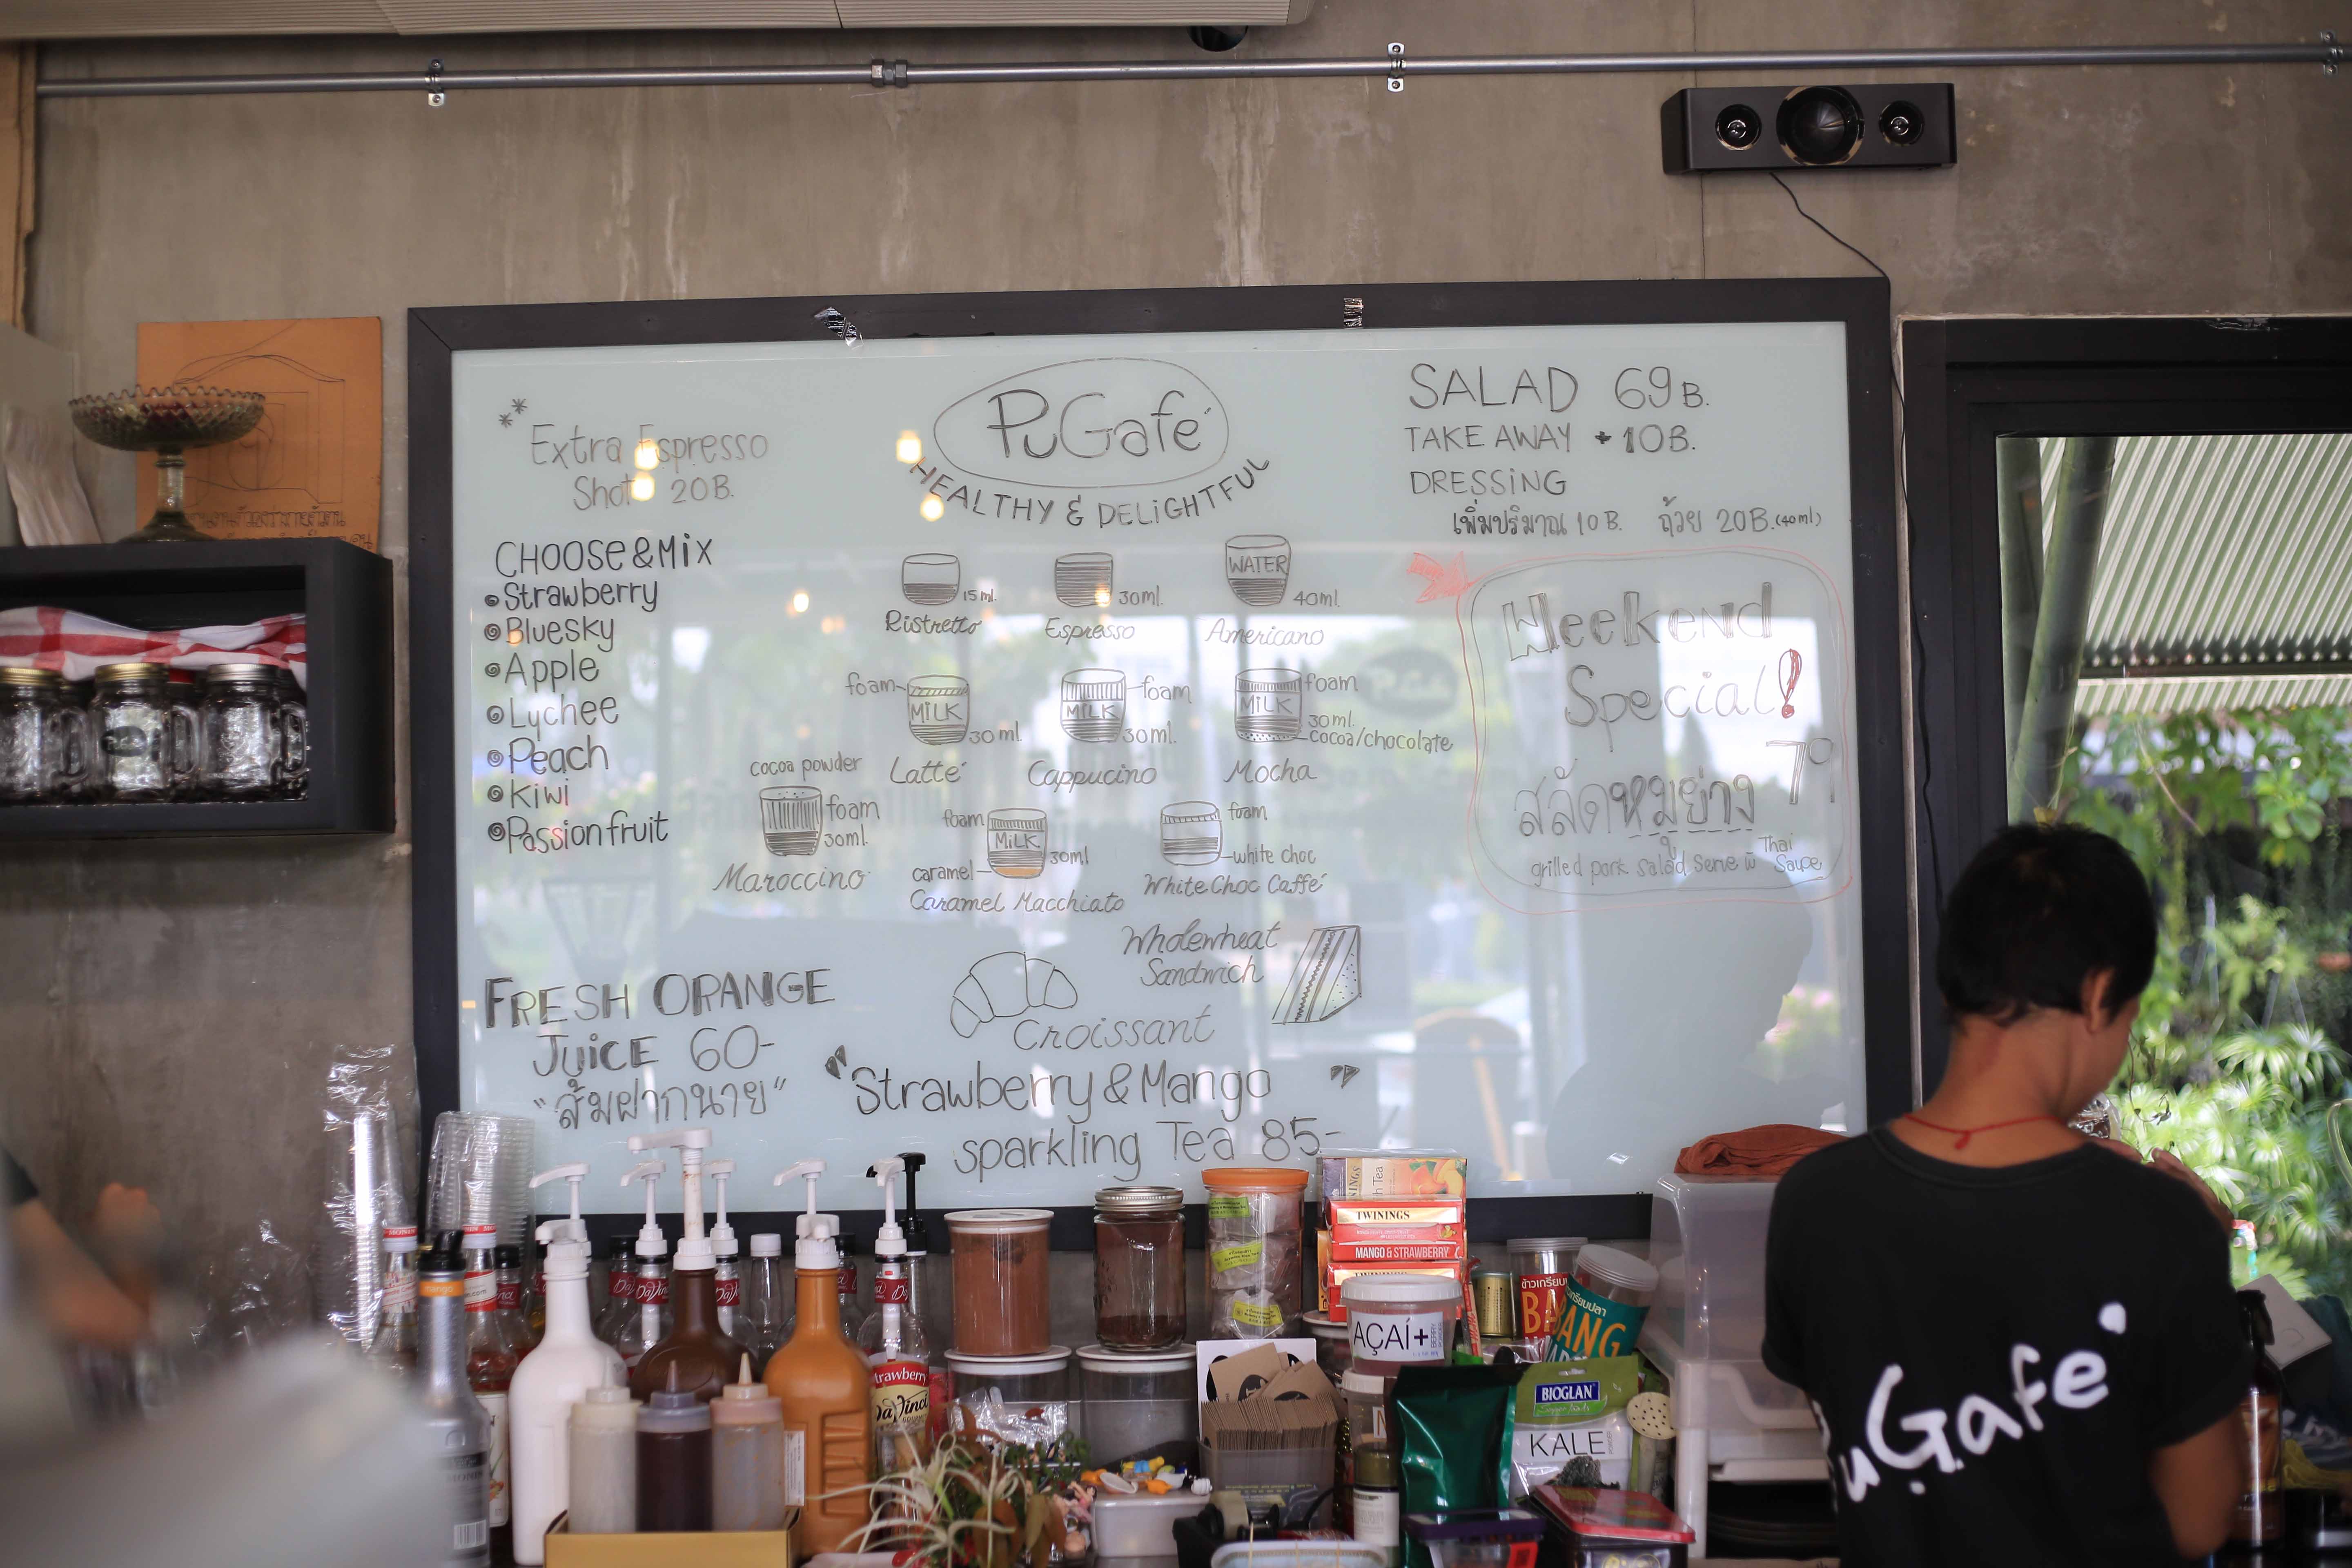 ** Extra Espresso
Shot 20B.
CHOOSE & MiX
Strawberry
Bluesky
Apple
Lychee
Peach
Kiwi
Passionfruit
FRESH ORANGE
JUiCE 60-
"ส้มฝากนาย"
PuGafé
HEALTHY & DELiGHTFUL
15 ml.
Ristretto
30ml.
Espresso
WATER
40ml.
Americano
foam
MiLK
30 ml.
Latté
foam
MiLK
30ml.
Cappucino
foam
MiLK
30 ml.
cocoa/chocolate
Mocha
cocoa powder
foam
30ml.
Maroccino
foam
MiLK
30ml
caramel
Caramel Macchiato
foam
white choc
White Choc Caffé
Wholewheat
Sandwich
Croissant
"Strawberry & Mango"
sparkling Tea 85-
SALAD 69B.
TAKE AWAY + 10B.
DRESSiNG
เพิ่มปริมาณ 10B. ถ้วย 20B.(40ml)
Weekend
Special!
สลัดหมูย่าง
grilled pork salad serve w Thai Sauce
mango
DaVinci
DaVinci
Strawberry
DaVinci
TWININGS
MANGO & STRAWBERRY
AÇAÍ+
BERRY
BIOGLAN
Superfoods
KALE
BANG
uGafe'